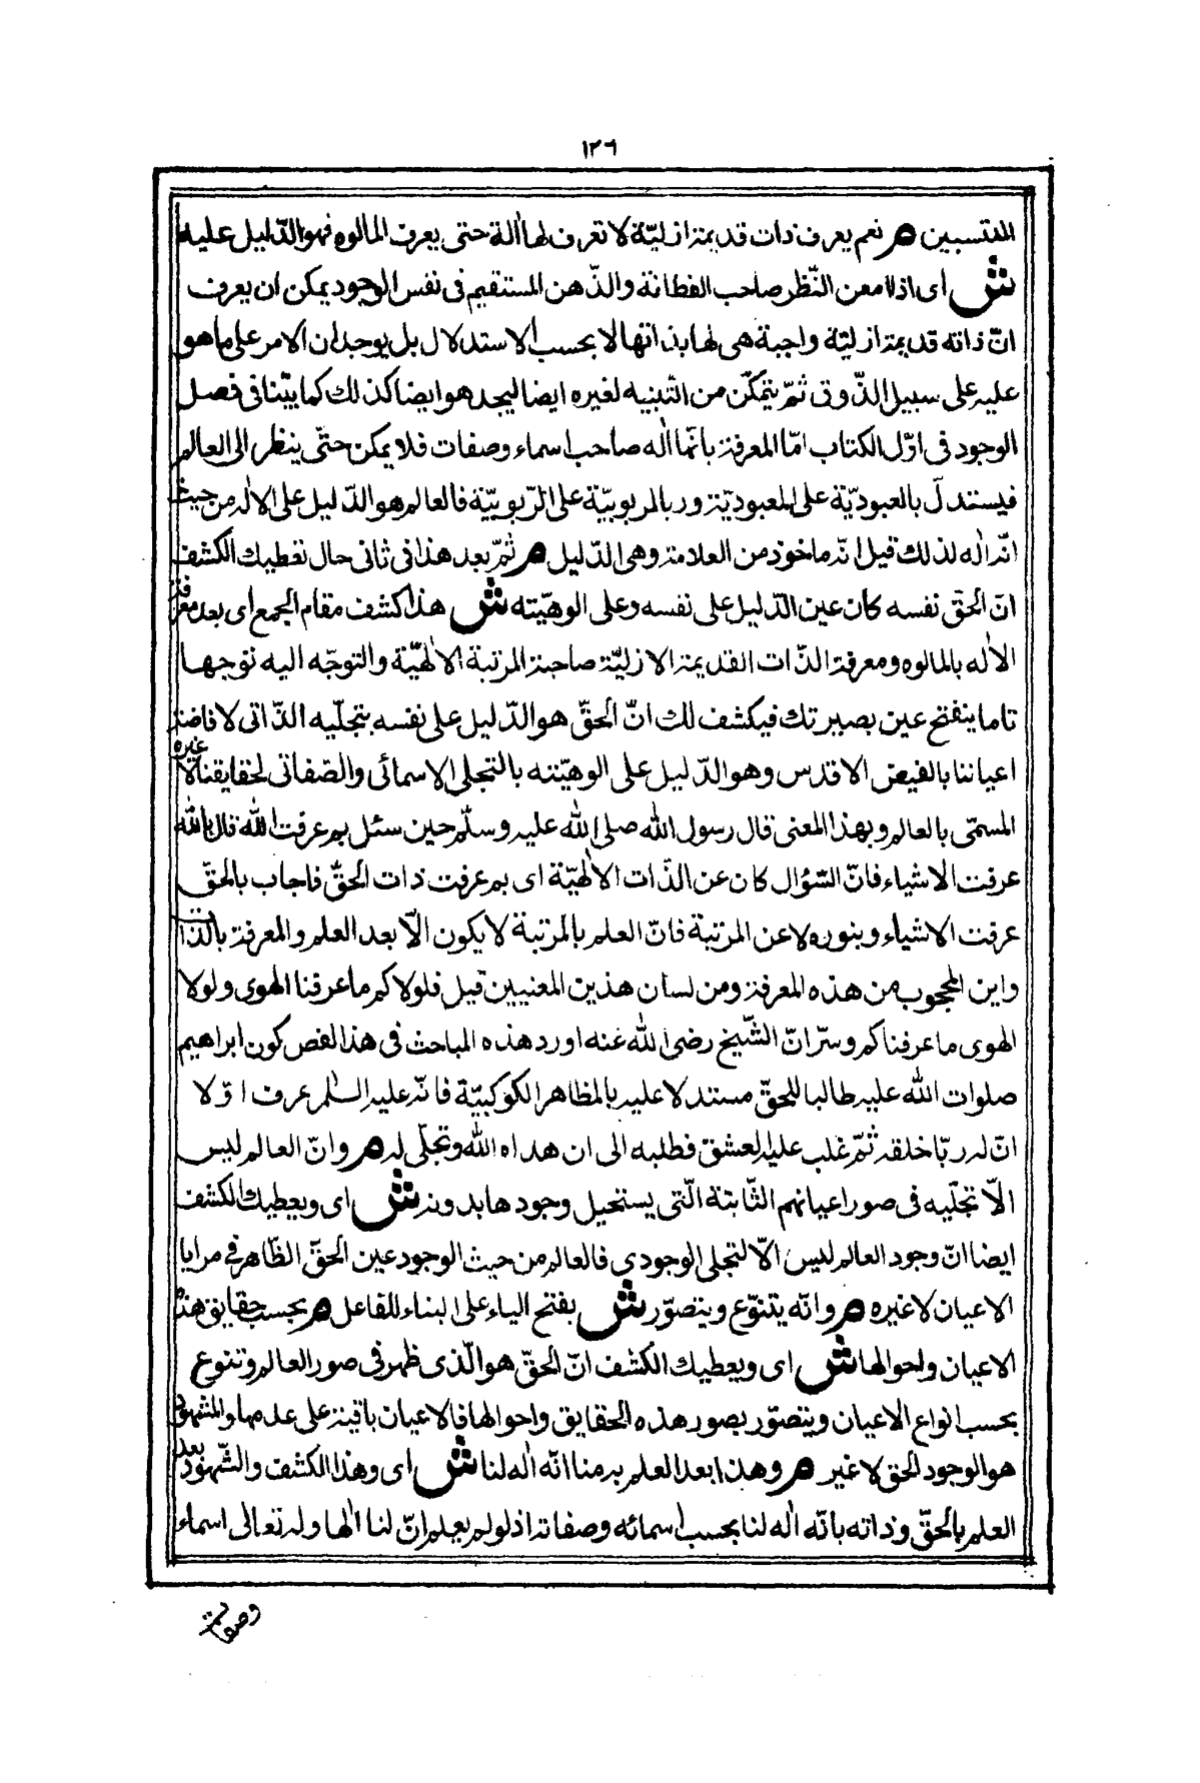 ١٢٦
المنتسبين م نعم يعرف ذات قديمة ازليّة لا تعرف لها اله حتى يعرف المالوه فهو الدّليل عليه
ش اى اذا امعن النّظر صاحب الفطانة والذّهن المستقيم فى نفس الوجود يمكن ان يعرف
انّ ذاته قديمة ازليّة واجبة هى لها بذاتها لا بحسب الاستدلال بل يوجدان الامر على ما هو
عليه على سبيل الذّوق ثمّ يتمكّن من التّنبيه لغيره ايضا ليجد هو ايضا كذلك كما بيّنا فى فصل
الوجود فى اوّل الكتاب امّا المعرفة بانّها اله صاحب اسماء وصفات فلا يمكن حتّى ينظر الى العالم
فيستدلّ بالعبوديّة على المعبوديّة وربالمربوبيّة على الرّبوبيّة فالعالم هو الدّليل على الاله من حيث
انّه اله لذلك قيل انّه ماخوذ من العلامة وهى الدّليل م ثمّ بعد هذا فى ثانى حال تعطيك الكشف
انّ الحقّ نفسه كان عين الدّليل على نفسه وعلى الوهيّته ش هذا كشف مقام الجمع اى بعد معرفة
الاله بالمالوه ومعرفة الذّات القديمة الازليّة صاحبة المرتبة الالهيّة والتوجّه اليه توجها
تاما ينفتح عين بصيرتك فيكشف لك انّ الحقّ هو الدّليل على نفسه بتجلّيه الذّاتى لافاضة
اعياننا بالفيض الاقدس وهو الدّليل على الوهيّته بالتجلى الاسمائى والصّفاتى لحقايقنا لا غيره
المسمّى بالعالم وبهذا المعنى قال رسول الله صلى الله عليه وسلّم حين سئل بم عرفت الله قال بالله
عرفت الاشياء فانّ السّؤال كان عن الذّات الالهيّة اى بم عرفت ذات الحقّ فاجاب بالحقّ
عرفت الاشياء وبنوره لا عن المرتبة فانّ العلم بالمرتبة لا يكون الّا بعد العلم والمعرفة بالذّات
واين المحجوب من هذه المعرفة ومن لسان هذين المعنيين قيل فلولاكم ما عرفنا الهوى ولولا
الهوى ما عرفناكم وسرّ انّ الشّيخ رضى الله عنه اورد هذه المباحث فى هذا الفص كون ابراهيم
صلوات الله عليه طالبا للحقّ مستدلا عليه بالمظاهر الكوكبيّة فانّه عليه السلم عرف اوّلا
انّ له ربّا خلقه ثمّ غلب عليه العشق فطلبه الى ان هداه الله وتجلّى له م وانّ العالم ليس
الّا تجلّيه فى صور اعيانهم الثّابتة الّتى يستحيل وجودها بدونه ش اى ويعطيك الكشف
ايضا انّ وجود العالم ليس الّا التجلى الوجودى فالعالم من حيث الوجود عين الحقّ الظّاهر فى مرايا
الاعيان لا غيره م وانّه يتنوّع ويتصوّر ش بفتح الياء على البناء للفاعل م بحسب حقايق هذه
الاعيان واحوالها ش اى ويعطيك الكشف انّ الحقّ هو الّذى ظهر فى صور العالم وتنوع
بحسب انواع الاعيان ويتصوّر بصور هذه الحقايق واحوالها فالاعيان باقية على عدمها والمشهود
هو الوجود الحق لا غير م وهذا بعد العلم به منا انّه اله لنا ش اى وهذا الكشف والشّهود بعد
العلم بالحقّ وذاته بانّه اله لنا بحسب اسمائه وصفاته اذ لو لم يعلم انّ لنا الها وله تعالى اسماء
وصفات